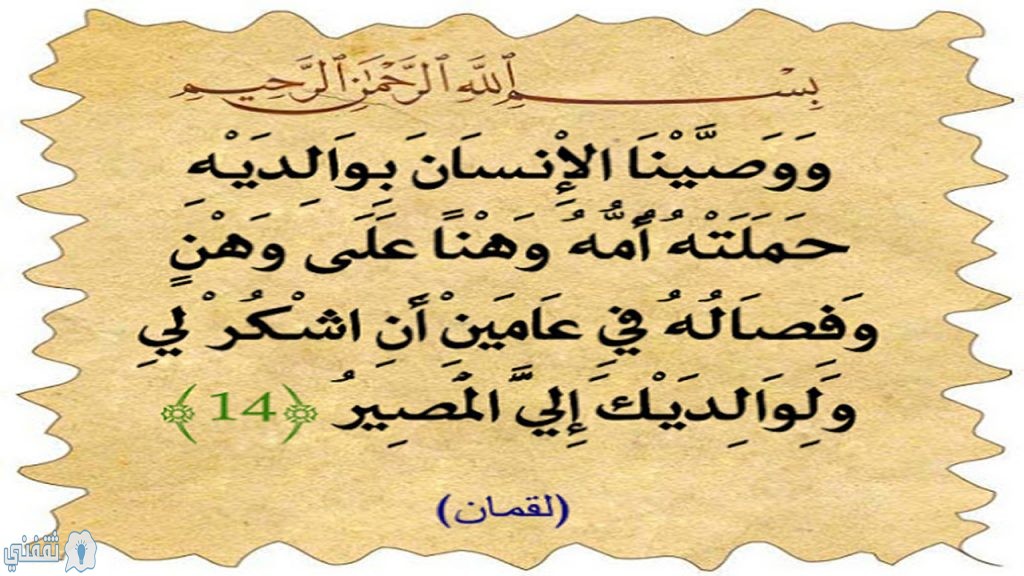 بِسْمِ ٱللَّهِ ٱلرَّحْمَٰنِ ٱلرَّحِيمِ
وَوَصَّيْنَا الْإِنسَانَ بِوَالِدَيْهِ
حَمَلَتْهُ أُمُّهُ وَهْنًا عَلَى وَهْنٍ
وَفِصَالُهُ فِي عَامَيْنِ أَنِ اشْكُرْ لِي
وَلِوَالِدَيْكَ إِلَيَّ الْمَصِيرُ ﴿14﴾
(لقمان)
ثقفني